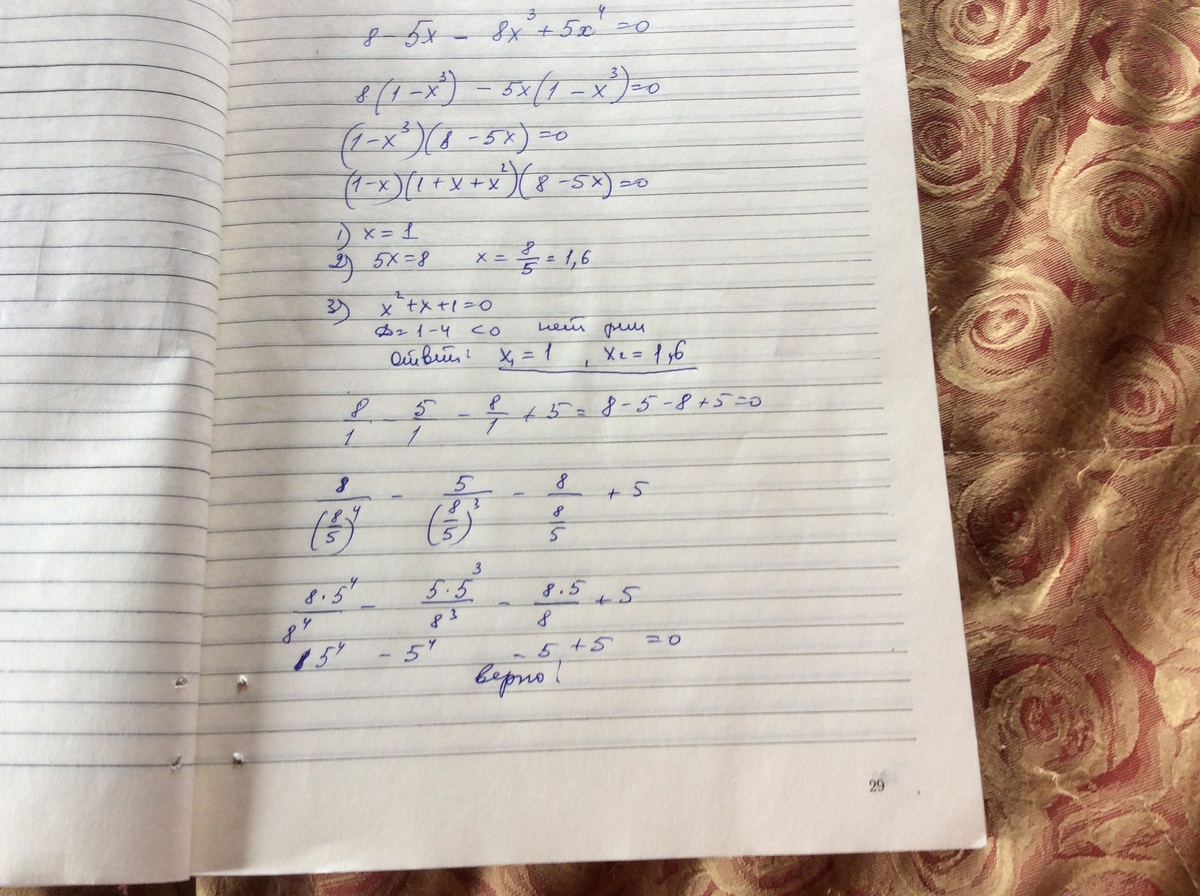 8 - 5x - 8x³ + 5x⁴ = 0
8(1 - x³) - 5x(1 - x³) = 0
(1 - x³)(8 - 5x) = 0
(1 - x)(1 + x + x²)(8 - 5x) = 0
1) x = 1
2) 5x = 8 x = 8/5 = 1,6
3) x² + x + 1 = 0
D = 1 - 4 < 0 нет
ответ: x₁ = 1 , x₂ = 1,6
8/1 - 5/1 - 8/1 + 5 = 8 - 5 - 8 + 5 = 0
8/(8/5)⁴ - 5/(8/5)³ - 8/(8/5) + 5
8·5⁴/8⁴ - 5·5³/8³ - 8·5/8 + 5
5⁴ - 5⁴ - 5 + 5 = 0
верно!
29